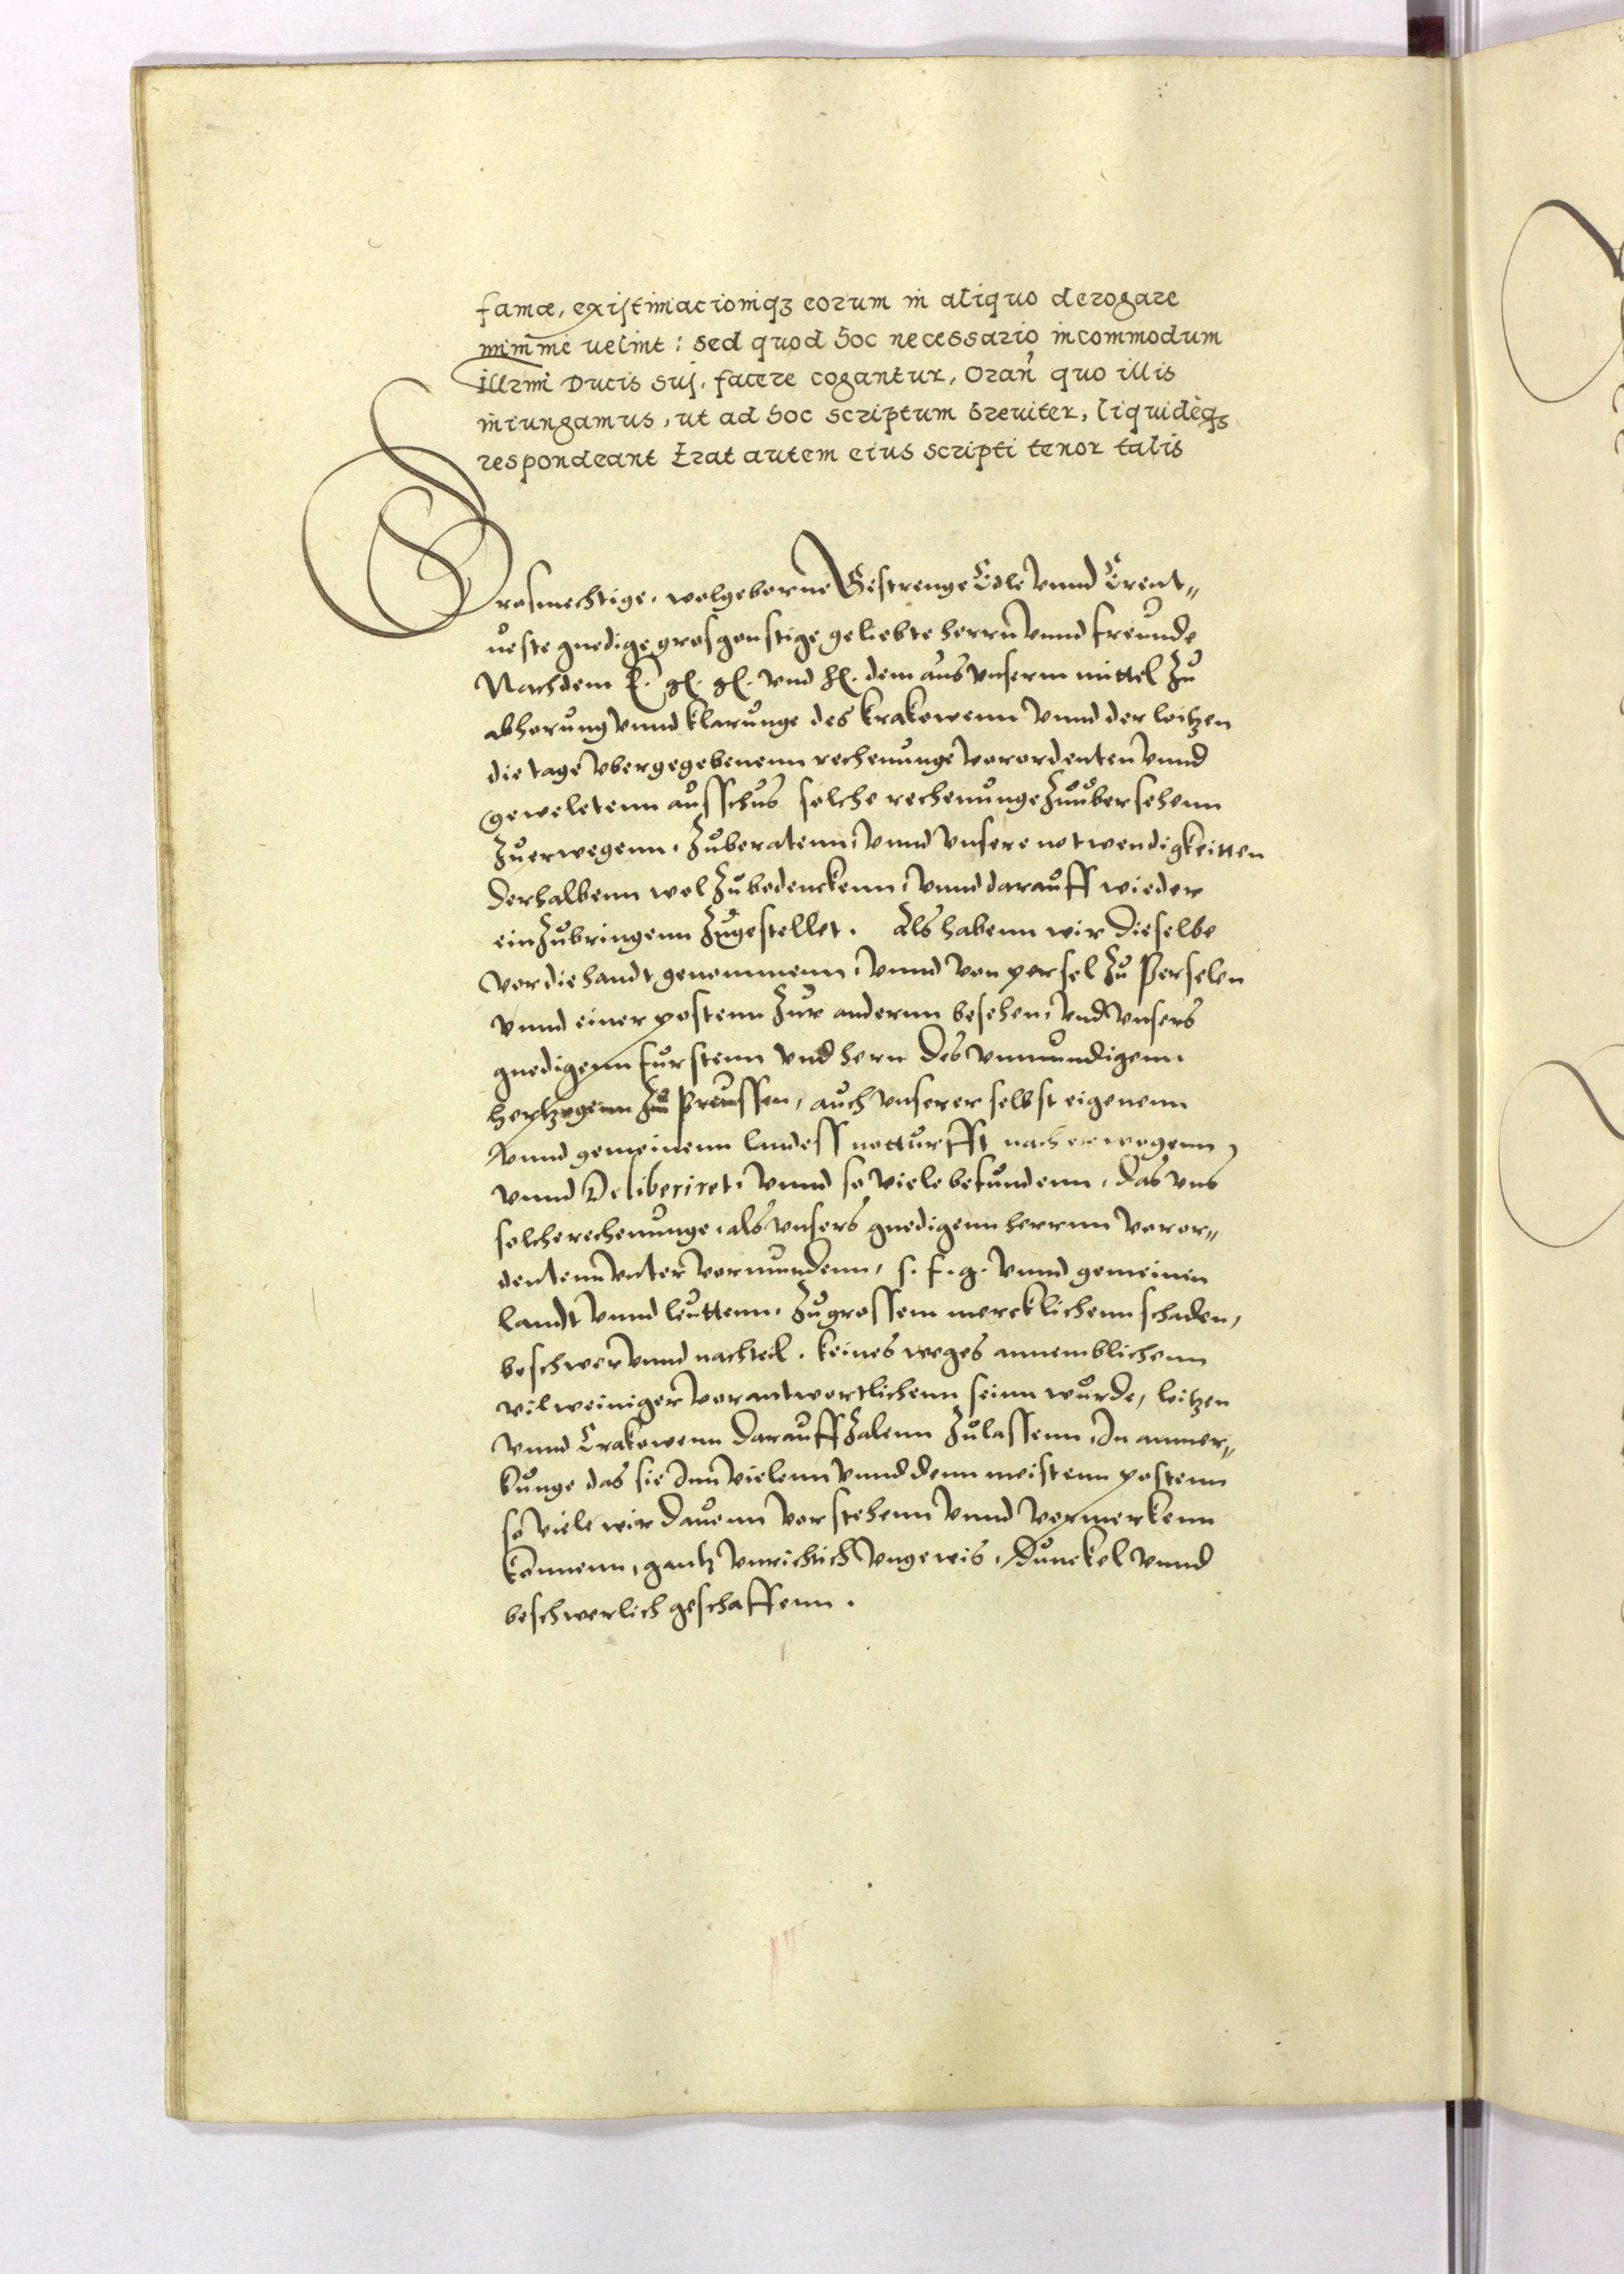 famæ, existimacioniqȝ eorum in aliquo derogare
minime uelint : sed quod hoc necessario incommodum
Illrmi Ducis sui, facere cogantur, Oran quo illis
iniungamus, ut ad hoc scriptum breuiter, liquideqȝ
respondeant Erat autem eius scripti tenor talis
Grosmechtige, wolgeborne Gestrenge Edle vnnd Erent„
ueste gnedige grosgonstige geliebte herrn vnnd freunde
Nachdem E. gl. gl. vnd hl. dem aus vnserm mittel zu
abhorung vnnd klarunge des krakowenn vnnd der loitzen
die tage vbergegebenenn rechenunge vorordenten vnnd
geweletenn ausschus solche rechenunge zuubersehenn
zuerwegenn, zuberatenn, vnnd vnsere notwendigkeitten
derhalbenn wol zubedenckenn, vnnd darauff wieder
einzubringenn zugestellet. Als habenn wir dieselbe
vor die handt genommenn, vnnd von persel zu Perselen
vnnd einer postenn zur andernn besehen, vnd vnsers
gnedigenn furstenn vnd hern des vnmundigenn
hertzogenn zu Preussen, auch vnserer selbst eigenenn
vnnd gemeinenn landess notturfft nach erwogenn
vnnd Deliberiret, vnnd so viele befundenn, das vns
solche rechenunge, als vnsers gnedigenn herrnn voror„
dentenn vnter vormundenn, s. f. g. vnnd gemeinen
landt vnnd leuttenn, zu grossem mercklichenn schaden,
beschwer vnnd nachteil, keines weges annemblichenn
vilweiniger vorantwortlichenn seinn wurde, loitzen
vnnd Crakowenn darauff zalenn zulassenn, In anmer„
kunge das sie Inn vielenn vnnd denn meistenn postenn
so viele wir dauonn vorstehenn vnnd vormerkenn
konnenn, gantz vnrichtich vngewis, dunckel vnnd
beschwerlich geschaffenn.